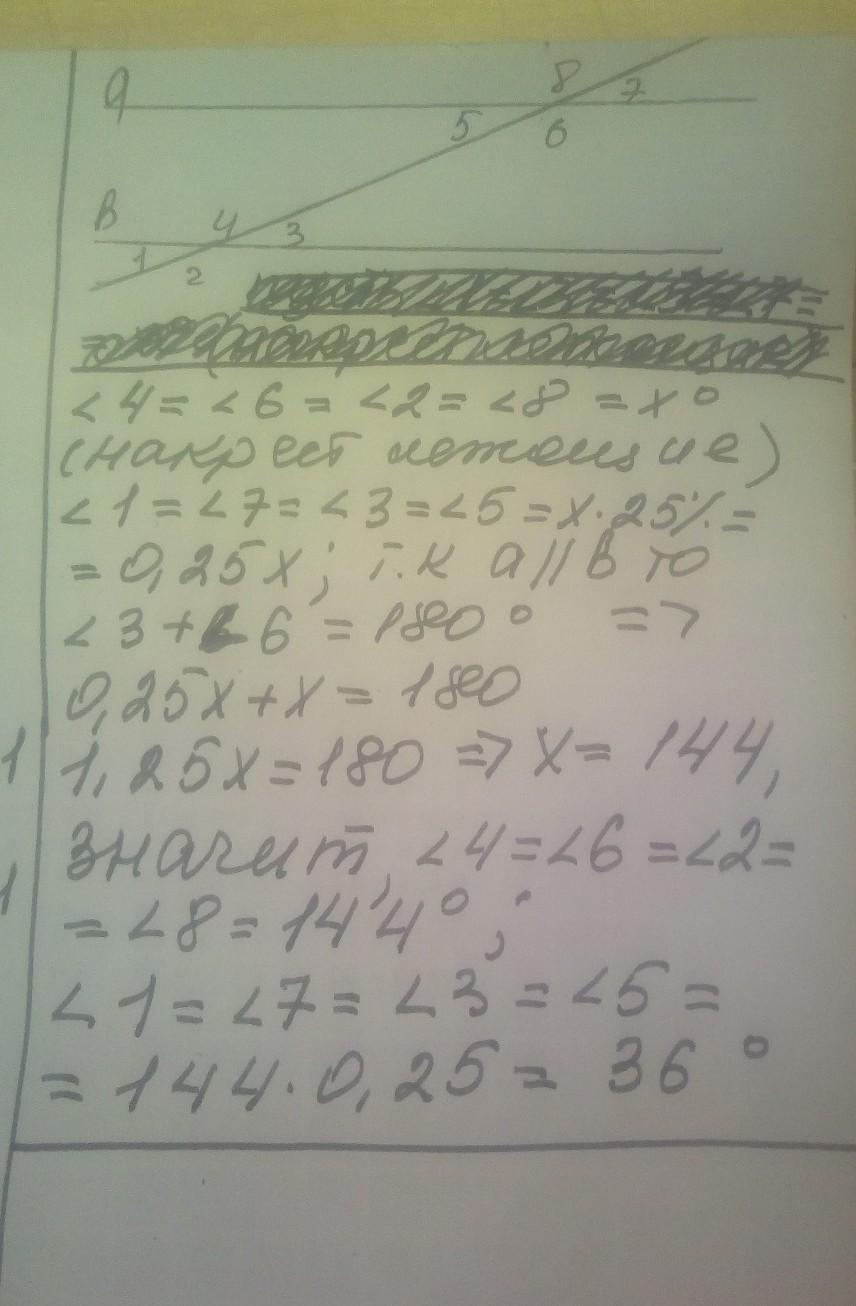 a
8
7
5
6
в
4
3
1
2
<4=<6=<2=<8=x°
(накрест лежащие)
<1=<7=<3=<5=x·25%=
=0,25x; т.к a||в то
<3+<6=180° =>
0,25x+x=180
1,25x=180 => x=144,
значит, <4=<6=<2=
=<8=144°;
<1=<7=<3=<5=
=144·0,25= 36°